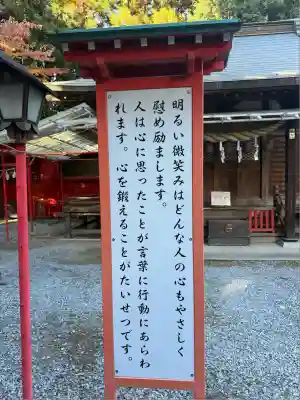 明るい微笑みはどんな人の心もやさしく
慰め励まします。
人は心に思ったことが言葉に行動にあらわ
れます。心を鍛えることがたいせつです。